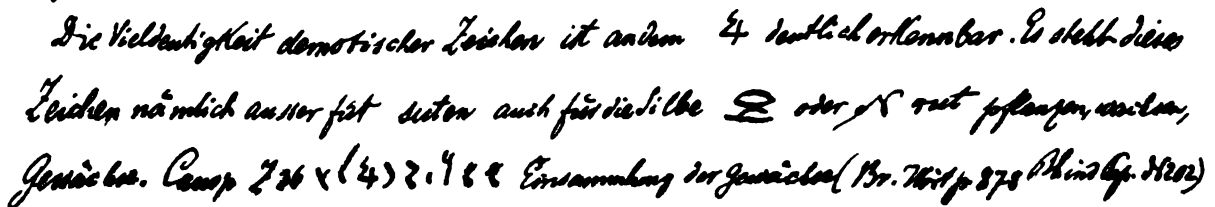 Die Vieldeutigkeit demotischer Zeichen ist an dem deutlich erkennbar. Es steht dieses
Zeichen nämlich ausser für suten auch für die Silbe oder rut pflanzen, wachsen,
Gewächse. Einsammlung der Gewächse (Br. Wört p 878 Rhind Pap. № 202)